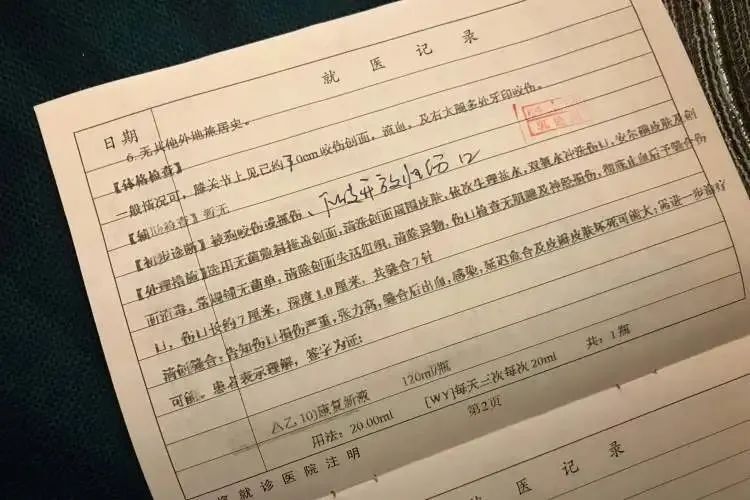 就医记录
日期
6.无其他外地旅居史。
【体格检查】
一般情况可，膝关节上见已约 0cm咬伤创面，流血，及右大腿多处牙印咬伤。
【辅助检查】暂无
【初步诊断】被狗咬伤或抓伤、 开放性伤口
【处理措施】先用无菌敷料掩盖创面，清洗创面周围皮肤，依次生理盐水，双氧水冲洗伤口，安尔碘皮肤及创
面消毒，常规铺无菌单，清除创面失活组织，清除异物，伤口检查无肌腱及神经损伤，彻底止血后予缝合伤
口，伤口长约7厘米，深度1.0厘米，共缝合7针
清创缝合：告知伤口损伤严重，张力高，缝合后出血，感染，延迟愈合及皮瓣皮肤坏死可能大；需进一步治疗
可能。患者表示理解，签字为证：
△乙 10)康复新液 120ml/瓶
用法：20.00ml [WY]每天三次每次20ml 共：1瓶
第2页
就诊医院注明
就医记录